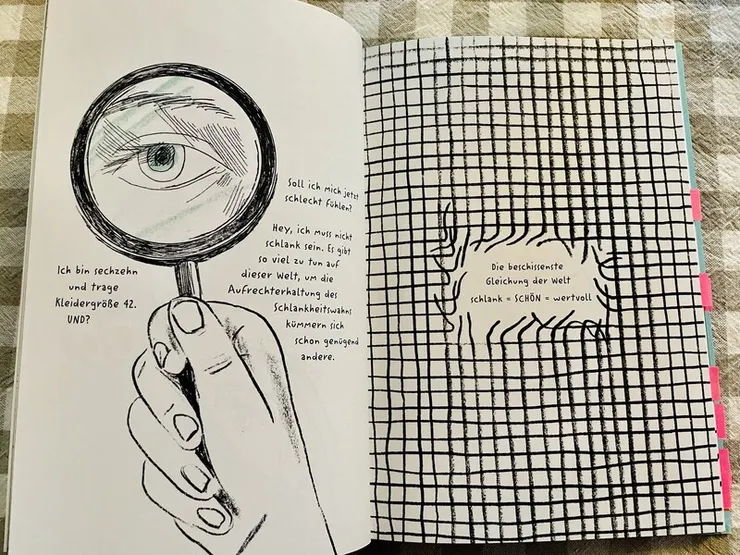 Ich bin sechzehn
und trage
Kleidergröße 42.
UND?
Soll ich mich jetzt
schlecht fühlen?
Hey, ich muss nicht
schlank sein. Es gibt
so viel zu tun auf
dieser Welt, um die
Aufrechterhaltung des
Schlankheitswahns
kümmern sich
schon genügend
andere.
Die beschissenste
Gleichung der Welt
schlank = SCHÖN = wertvoll